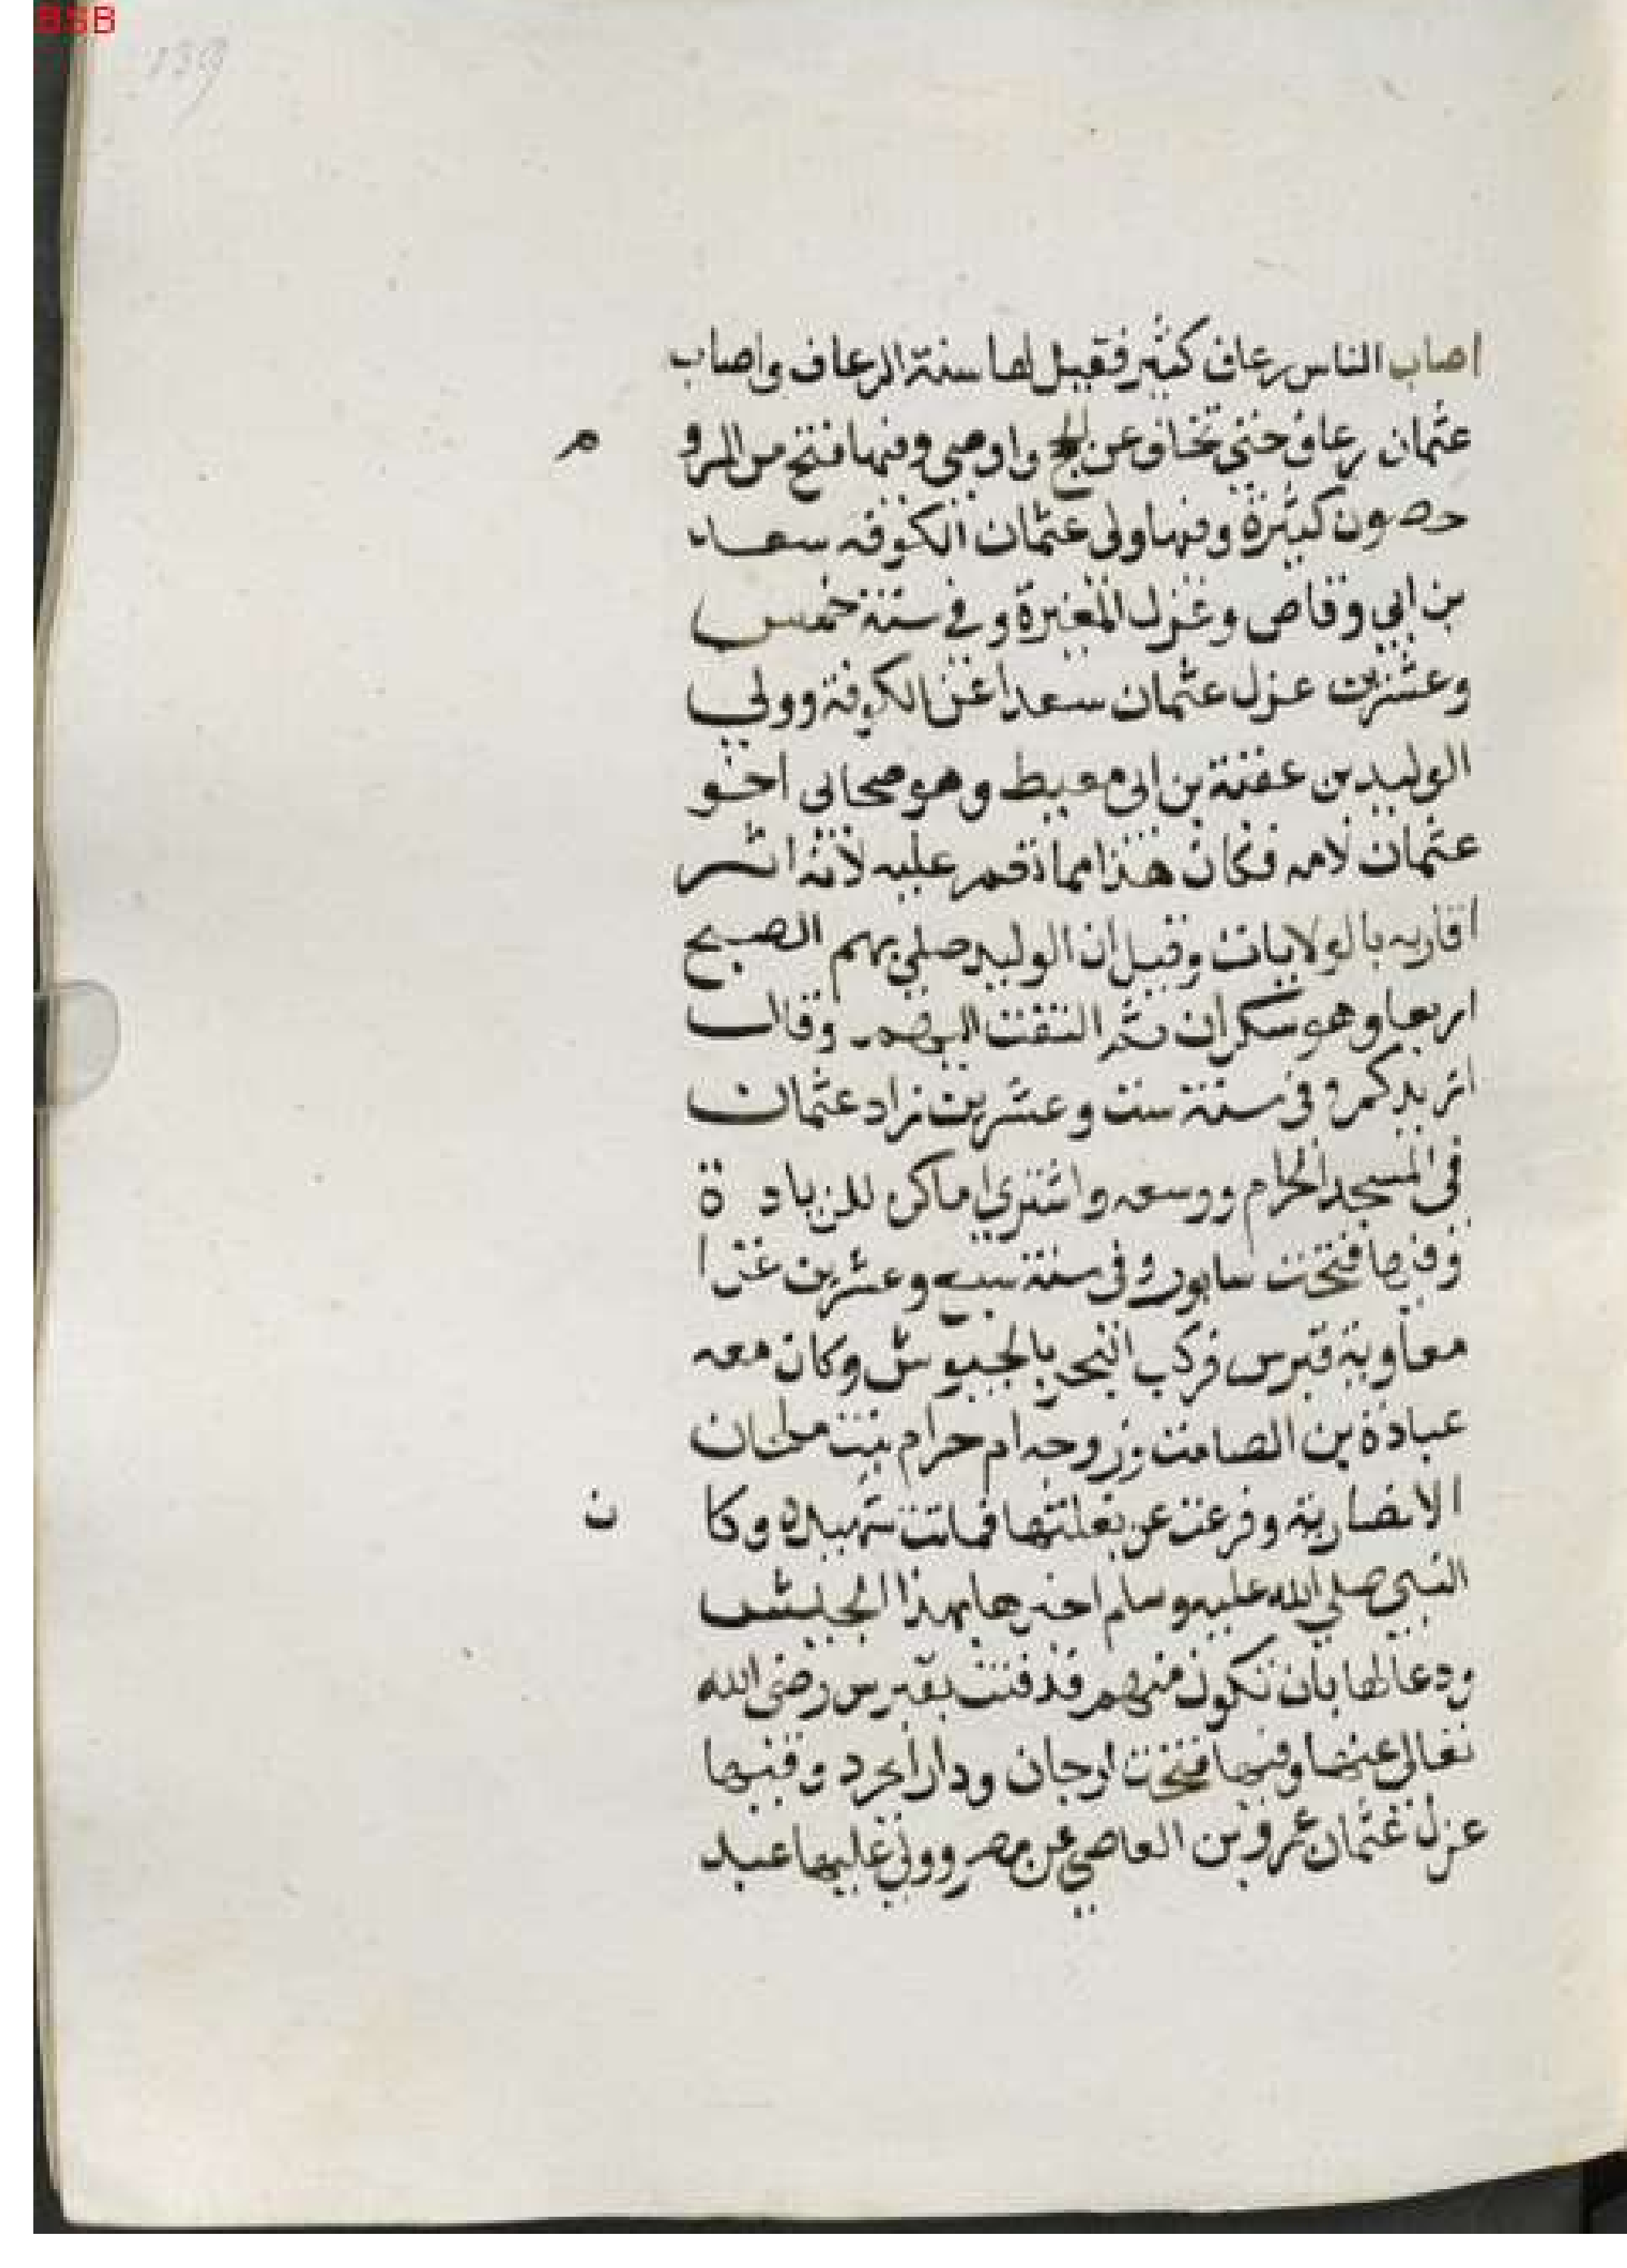 BSB
139
اصاب الناس رعاف كثير فقيل لها سنة الرعاف واصاب
عثمان رعاف حتى تخلف عن الحج واوصى وفيها فتح من الرو م
حصون كثيرة وفيها ولى عثمان الكوفه سعد
بن ابي وقاص وعزل المغيرة وفي سنة خمس
وعشرين عزل عثمان سعدا عن الكوفة وولي
الوليد بن عقبة بن ابى معيط وهو صحابى اخو
عثمان لامه فكان هذا مما نقم عليه لانه اثر
اقاربه بالولايات وقيل ان الوليد صلى بهم الصبح
اربعا وهو سكران ثم التفت اليهم وقال
ازيدكم وفى سنة ست وعشرين زاد عثمان
فى المسجد الحرام ووسعه واشترى اماكن للزياد ة
وفيها فتحت سابور وفى سنة سبع وعشرين غزا
معاوية قبرس فركب البحر بالجيوش وكان معه
عبادة بن الصامت وزوجه ام حرام بنت ملحان
الانصارية وفرعت عن بغلتها فماتت شهيده وكا ن
النبى صلى الله عليه وسلم اخبرها بهذا الجيش
ودعا لها بان تكون منهم فدفنت بقبرس رضى الله
تعالى عنها وفيها فتحت ارجان ودارابجرد وفيها
عزل عثمان عمرو بن العاصي عن مصر وولى عليها عبد